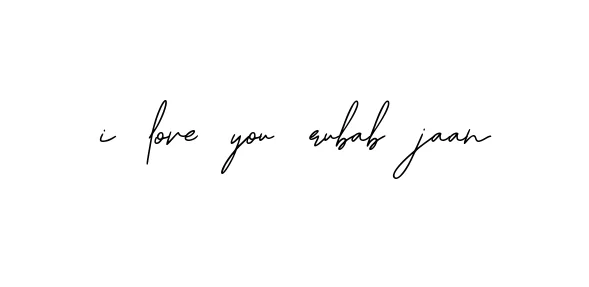 i love you rubab jaan